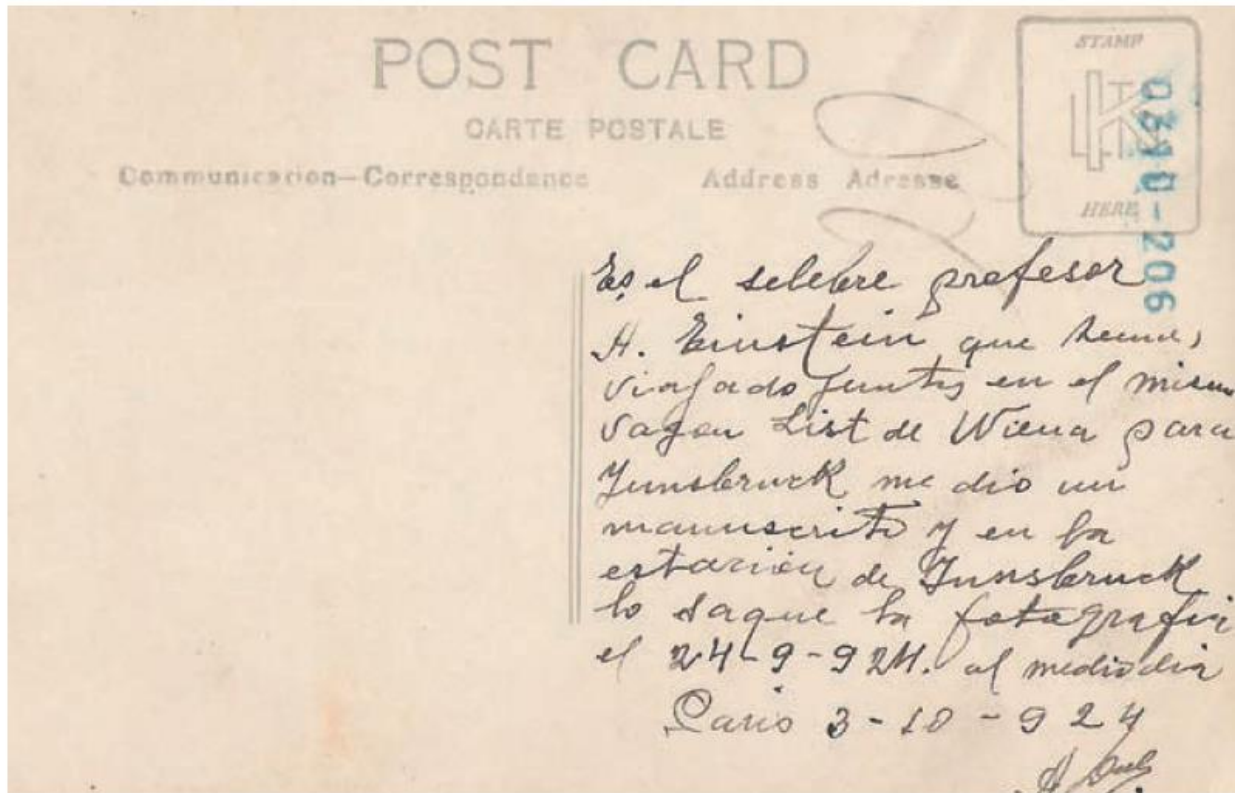 POST CARD
CARTE POSTALE
Communication—Correspondance
Address Adresse
STAMP
HERE
0310-206
Es el selebre profesor
A. Einstein que hemos
viajado juntos en el mismo
vagon List de Wiena para
Junsbruck me dio un
manuscrito y en la
estacion de Innsbruck
lo saque la fotografia
el 24-9-924. al mediodia
Paris 3-10-924